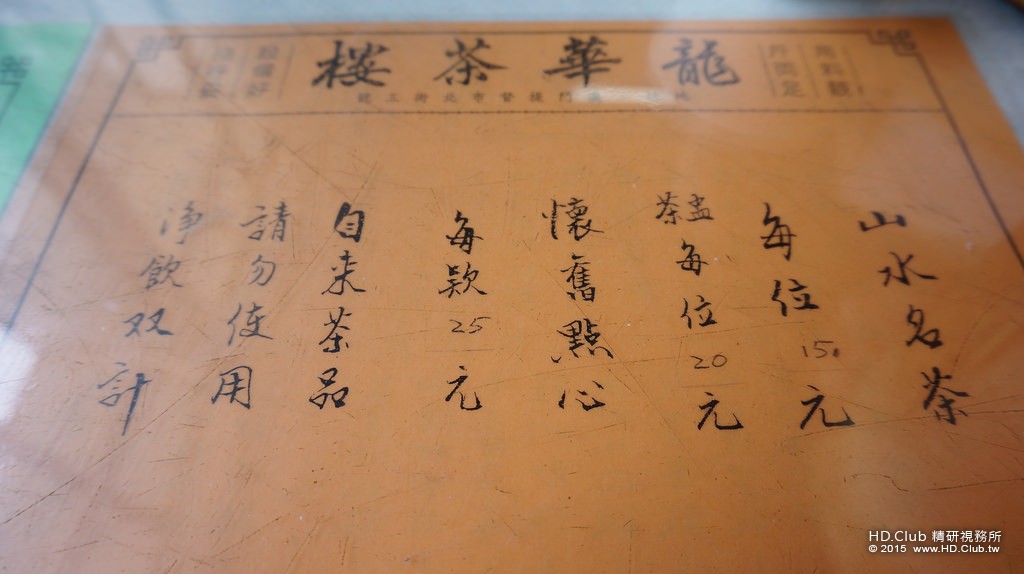 龍華茶楼
提督市北街
山水名茶
每位15元
盅茶每位20元
懷舊點心
每款25元
自来茶品
請勿使用
净飲双計
HD.Club 精研視務所
© 2015 www.HD.Club.tw